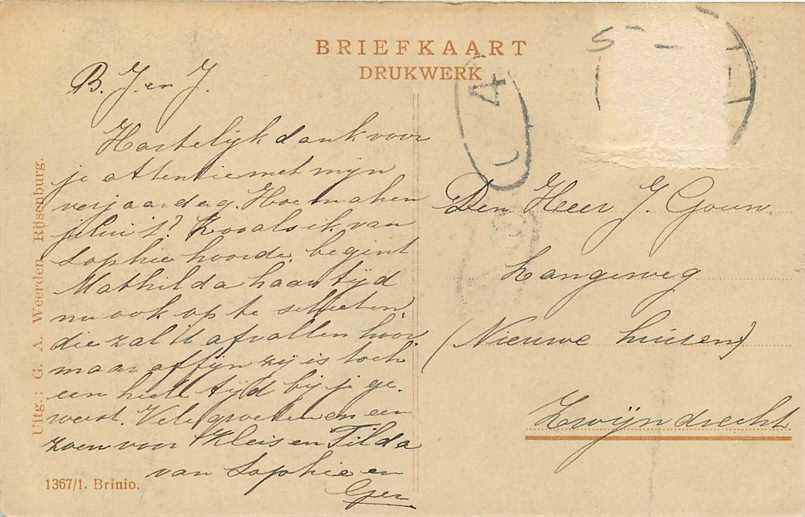 BRIEFKAART
DRUKWERK
B. J. en J.
Hartelijk dank voor
je attentie met mijn
verjaardag. Hoe maken
jelui 't? Zooals ik van
Sophie hoorde, begint
Mathilda haar tijd
nu ook op te schieten,
die zal 't afvallen hoor
maar affijn zij is toch
een heele tijd bij je ge-
weest. Vele groeten en een
zoen voor Kleis en Tilda
van Sophie en
Ger
Den Heer J. Goun
Langeweg
(Nieuwe huisen)
Zwijndrecht
Uitg.: G. A. Weerden, Rijsenburg.
1367/1. Brinio.
5
4